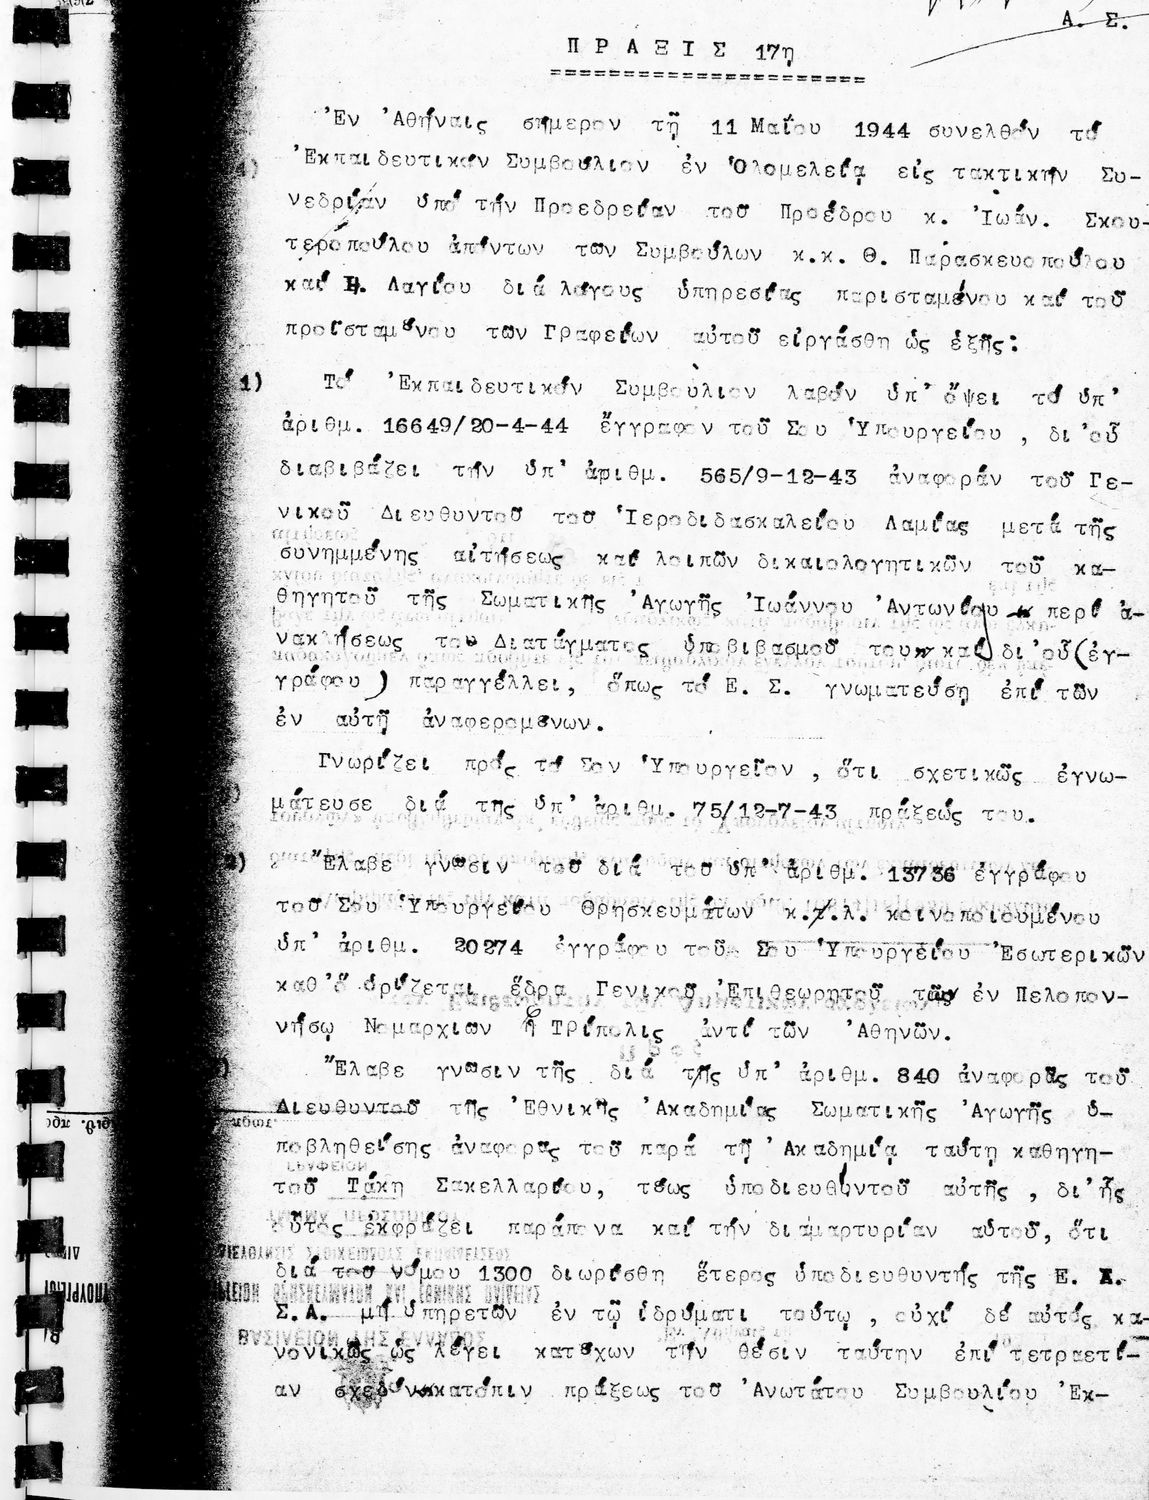 Α. Σ.
Π Ρ Α Ξ Ι Σ 17η
Ἐν Ἀθήναις σήμερον τῇ 11 Μαΐου 1944 συνελθόν τό
Ἐκπαιδευτικόν Συμβούλιον ἐν Ὁλομελείᾳ εἰς τακτικήν Συ-
νεδρίαν ὑπό τήν Προεδρείαν τοῦ Προέδρου κ. Ἰωάν. Σκου-
τεροπούλου ἀπόντων τῶν Συμβούλων κ.κ. Θ. Παρασκευοπούλου
καί Π. Λαγίου διά λόγους ὑπηρεσίας παρισταμένου καί τοῦ
προϊσταμένου τῶν Γραφείων αὐτοῦ εἰργάσθη ὡς ἑξῆς:
1) Τό Ἐκπαιδευτικόν Συμβούλιον λαβόν ὑπ' ὄψει τό ὑπ'
ἀριθμ. 16649/20-4-44 ἔγγραφον τοῦ Σου Ὑπουργείου, δι'οὗ
διαβιβάζει τήν ὑπ' ἀριθμ. 565/9-12-43 ἀναφοράν τοῦ Γε-
νικοῦ Διευθυντοῦ τοῦ Ἱεροδιδασκαλείου Λαμίας μετά τῆς
συνημμένης αἰτήσεως καί λοιπῶν δικαιολογητικῶν τοῦ κα-
θηγητοῦ τῆς Σωματικῆς Ἀγωγῆς Ἰωάννου Ἀντωνίου περί ἀ-
νακλήσεως του Διατάγματος ὑποβιβασμοῦ του καί δι'οὗ (ἐγ-
γράφου) παραγγέλλει, ὅπως τό Ε. Σ. γνωματεύσῃ ἐπί τῶν
ἐν αὐτῇ ἀναφερομένων.
Γνωρίζει πρός τό Σον Ὑπουργεῖον, ὅτι σχετικῶς ἐγνω-
μάτευσε διά της ὑπ' ἀριθμ. 75/12-7-43 πράξεώς του.
2) Ἔλαβε γνῶσιν τοῦ διά τοῦ ὑπ' ἀριθμ. 13736 ἐγγράφου
τοῦ Σου Ὑπουργείου Θρησκευμάτων κ.τ.λ. κοινοποιουμένου
ὑπ' ἀριθμ. 20274 ἐγγράφου τοῦ Σου Ὑπουργείου Ἐσωτερικῶν
καθ'ὅ ὁρίζεται ἕδρα Γενικοῦ Ἐπιθεωρητοῦ τῶν ἐν Πελοπον-
νήσῳ Νομαρχιῶν ἡ Τρίπολις ἀντί τῶν Ἀθηνῶν.
) Ἔλαβε γνῶσιν τῆς διά τῆς ὑπ' ἀριθμ. 840 ἀναφορᾶς τοῦ
Διευθυντοῦ τῆς Ἐθνικῆς Ἀκαδημίας Σωματικῆς Ἀγωγῆς ὑ-
ποβληθείσης ἀναφορᾶς τοῦ παρά τῇ Ἀκαδημίᾳ ταύτῃ καθηγη-
τοῦ Τάκη Σακελλαρίου, τέως ὑποδιευθυντοῦ αὐτῆς, δι'ἧς
οὗτος ἐκφράζει παράπονα καί τήν διαμαρτυρίαν αὐτοῦ, ὅτι
διά τοῦ νόμου 1300 διωρίσθη ἕτερος ὑποδιευθυντής τῆς Ε. Α.
Σ.Α. μή ὑπηρετῶν ἐν τῷ ἱδρύματι τούτῳ, οὐχί δέ αὐτός κα-
νονικῶς ὡς λέγει κατέχων τήν θέσιν ταύτην ἐπί τετραετί-
αν σχεδόν κατόπιν πράξεως τοῦ Ἀνωτάτου Συμβουλίου Ἐκ-